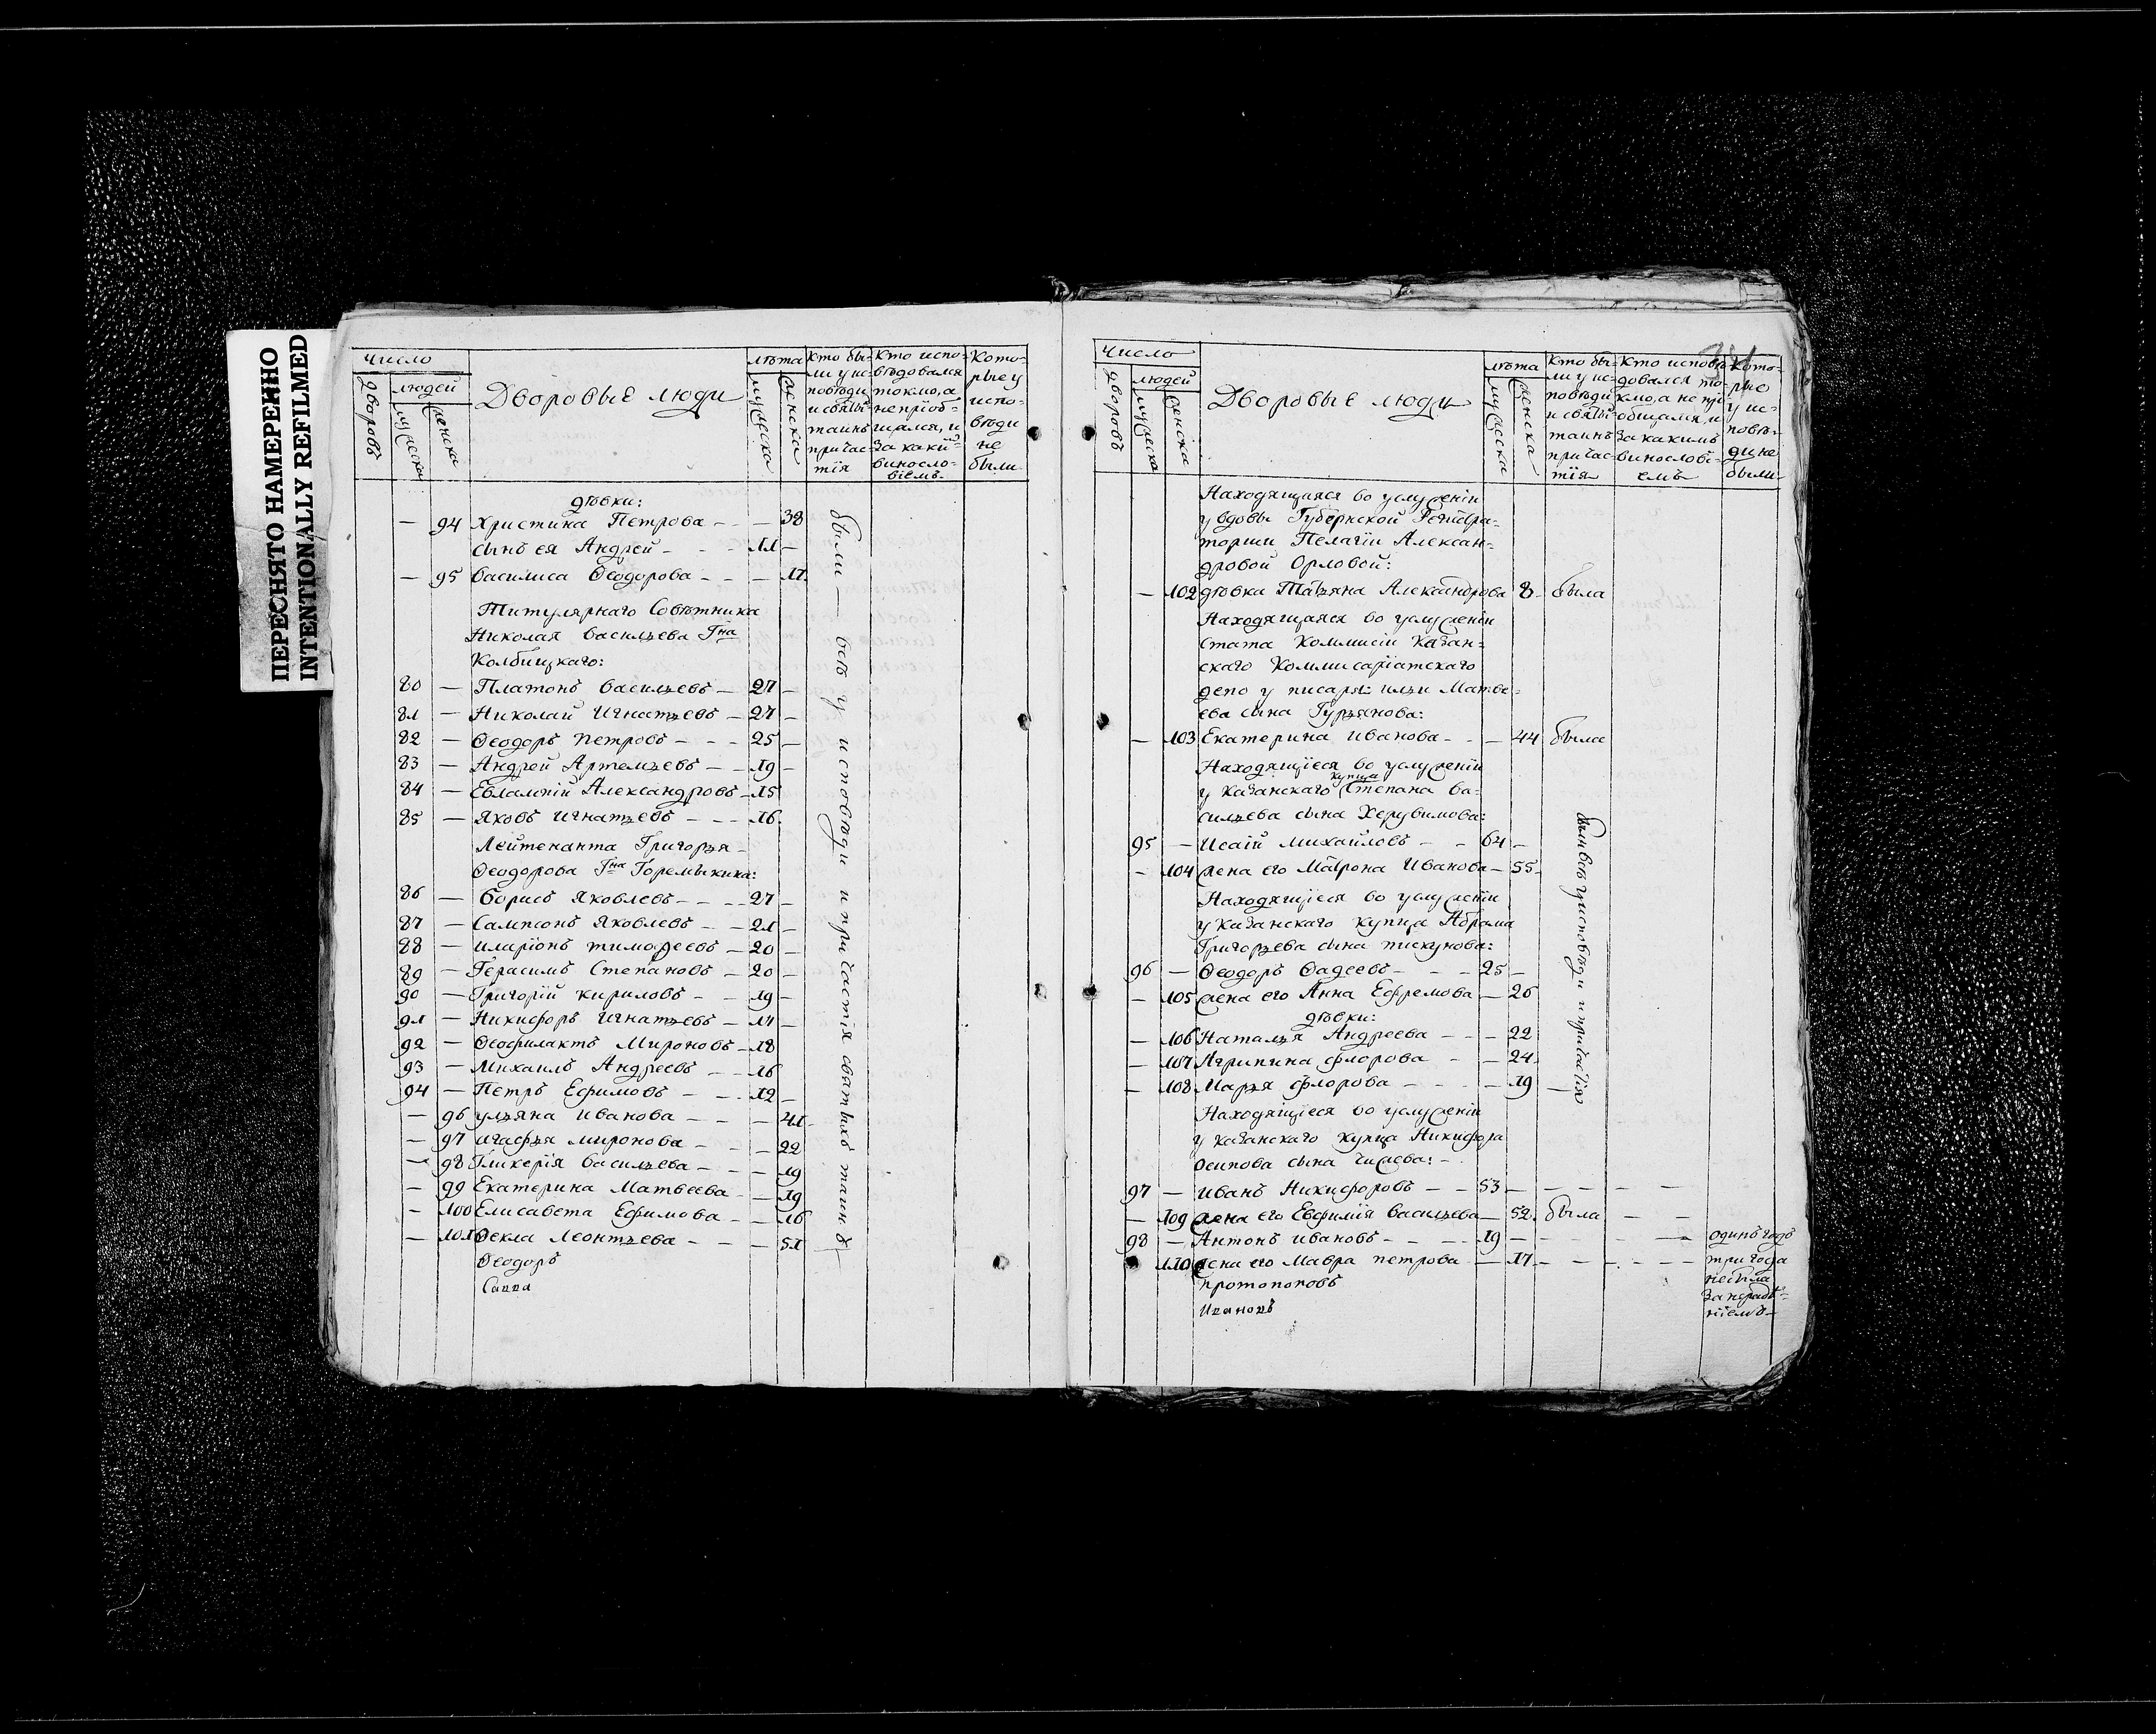 ПЕРЕСНЯТО НАМЕРЕННО
INTENTIONALLY REFILMED
Число
дворовъ
людей
мужеска
женска
Дворовые люди
лѣта
мужеска
женска
Кто бы-
ли у ис-
повѣди
и святы
таинъ
причас-
тїя
Кто испо-
вѣдовался
токмо, а
не прїоб-
щался, и
за каки
винносло-
вїемъ
Кото-
рые у
испо-
вѣди
не
были
дѣвки:
— 94 Христина Петрова — — — 38
сынъ ея Андрей — — 11 —
— 95 Василиса Ѳеодорова — — — 17
Титулярнаго Совѣтника
Николая Васильева Гна
Колбицкаго:
80 — Платонъ Васильевъ — 27 —
81 — Николай Игнатьевъ — 27 —
82 — Ѳеодоръ Петровъ — — 25 —
83 — Андрей Артемьевъ — — 19 —
84 — Евлампїй Александровъ — 15
85 — Яковъ Игнатьевъ — — — 16
Лейтенанта Григорья
Ѳеодорова Гна Горемыкина:
86 — Борисъ Яковлевъ — — — 27 —
87 — Сампсонъ Яковлевъ — — 21 —
88 — Иларїонъ Тимофеевъ — 20 —
89 — Герасимъ Степановъ — 20 —
90 — Григорїй Кириловъ — — 19 —
91 — Никифоръ Игнатьевъ — 17 —
92 — Ѳеофилактъ Мироновъ — 18
93 — Михаилъ Андреевъ — — 16
94 — Петръ Ефимовъ — — 12 —
— 96 Ульяна Иванова — — — 41
— 97 Агафья Миронова — — 22
— 98 Гликерїя Васильева — — — 19
— 99 Екатерина Матвеева — — 19
— 100 Елисавета Ефимова — — 16
— 101 Ѳекла Леонтьева — — — 51
были — всѣ у исповѣди и причастїя святыхъ таинъ
Ѳеодоръ
Савва
Число
дворовъ
людей
мужеска
женска
Дворовые люди
лѣта
мужеска
женска
Кто бы-
ли у ис-
повѣди
и святы
таинъ
причас-
тїя
Кто исповѣ-
довался то-
кмо, а не прї-
общался, и
за какимъ
виннословї-
емъ
Кото-
рые
у ис-
повѣ-
ди не
были
Находящаяся во услуженїи
у вдовы Губернской Регистра-
торши Пелагїи Алексан-
дровой Орловой:
— 102 дѣвка Татьяна Александрова 8 — была
Находящаяся во услуженїи
Стата Коммисїи Казан-
скаго Коммисарїатскаго
депо у писаря Ильи Матве-
ева сына Гурьянова:
— 103 Екатерина Иванова — — — 44 была
Находящїеся во услуженїи
купца
у Казанскаго Степана Ва-
сильева сына Херувимова:
95 — Исаїй Михайловъ — — 64 —
— 104 жена его Матрона Иванова — 55
Находящїеся во услуженїи
у Казанскаго купца Абрама
Григорьева сына Пискунова:
96 — Ѳеодоръ Ѳадеевъ — — — 25 —
— 105 жена его Анна Ефремова — 26
дѣвки:
— 106 Наталья Андреева — — — 22
— 107 Агрипина Флорова — — 24
— 108 Марья Флорова — — — 19 —
были всѣ у исповѣди и причастїя
Находящїеся во услуженїи
у Казанскаго купца Никифора
Осипова сына Чижева: —
97 — Иванъ Никифоровъ — — 53 — — — — —
— 109 жена его Евфимїя Васильева — 52 была — —
98 — Антонъ Ивановъ — — — 19 — — — — одинъ годъ
110 жена его Мавра Петрова — 17 — — — — — три года
не была
за нерадѣ-
нїемъ —
Протопоповъ
Ивановъ